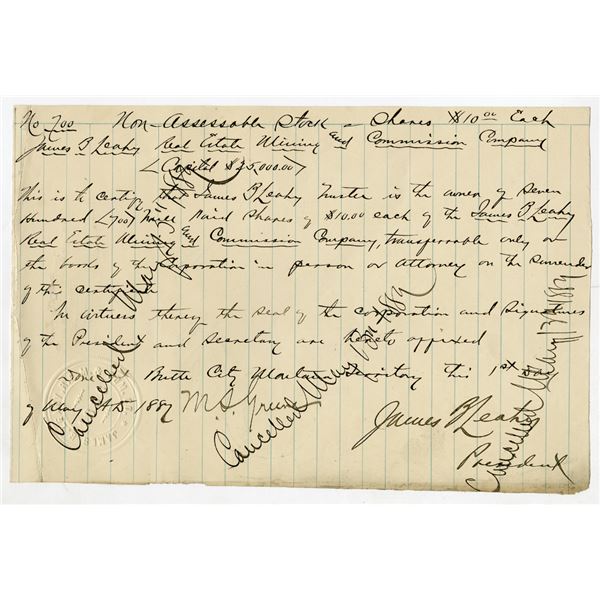 No 700 Non-Assessable Stock - Shares $10.00 Each
James B Leahy Real Estate Mining and Commission Company
Capital $25,000.00
This is to certify that James B Leahy Trustee is the owner of Seven
hundred (700) Shares of $10.00 each of the James B Leahy
Real Estate Mining and Commission Company, transferrable only on
the books of the Corporation in person or Attorney on the surrender
of this certificate
In witness thereof the seal of the corporation and signatures
of the President and Secretary are hereto affixed
Done at Butte City Montana Territory this 1st Day
of May A.D. 1889 M.S. James B Leahy
President
Cancelled May
Cancelled May 13th 1889
Cancelled May 13th 1889